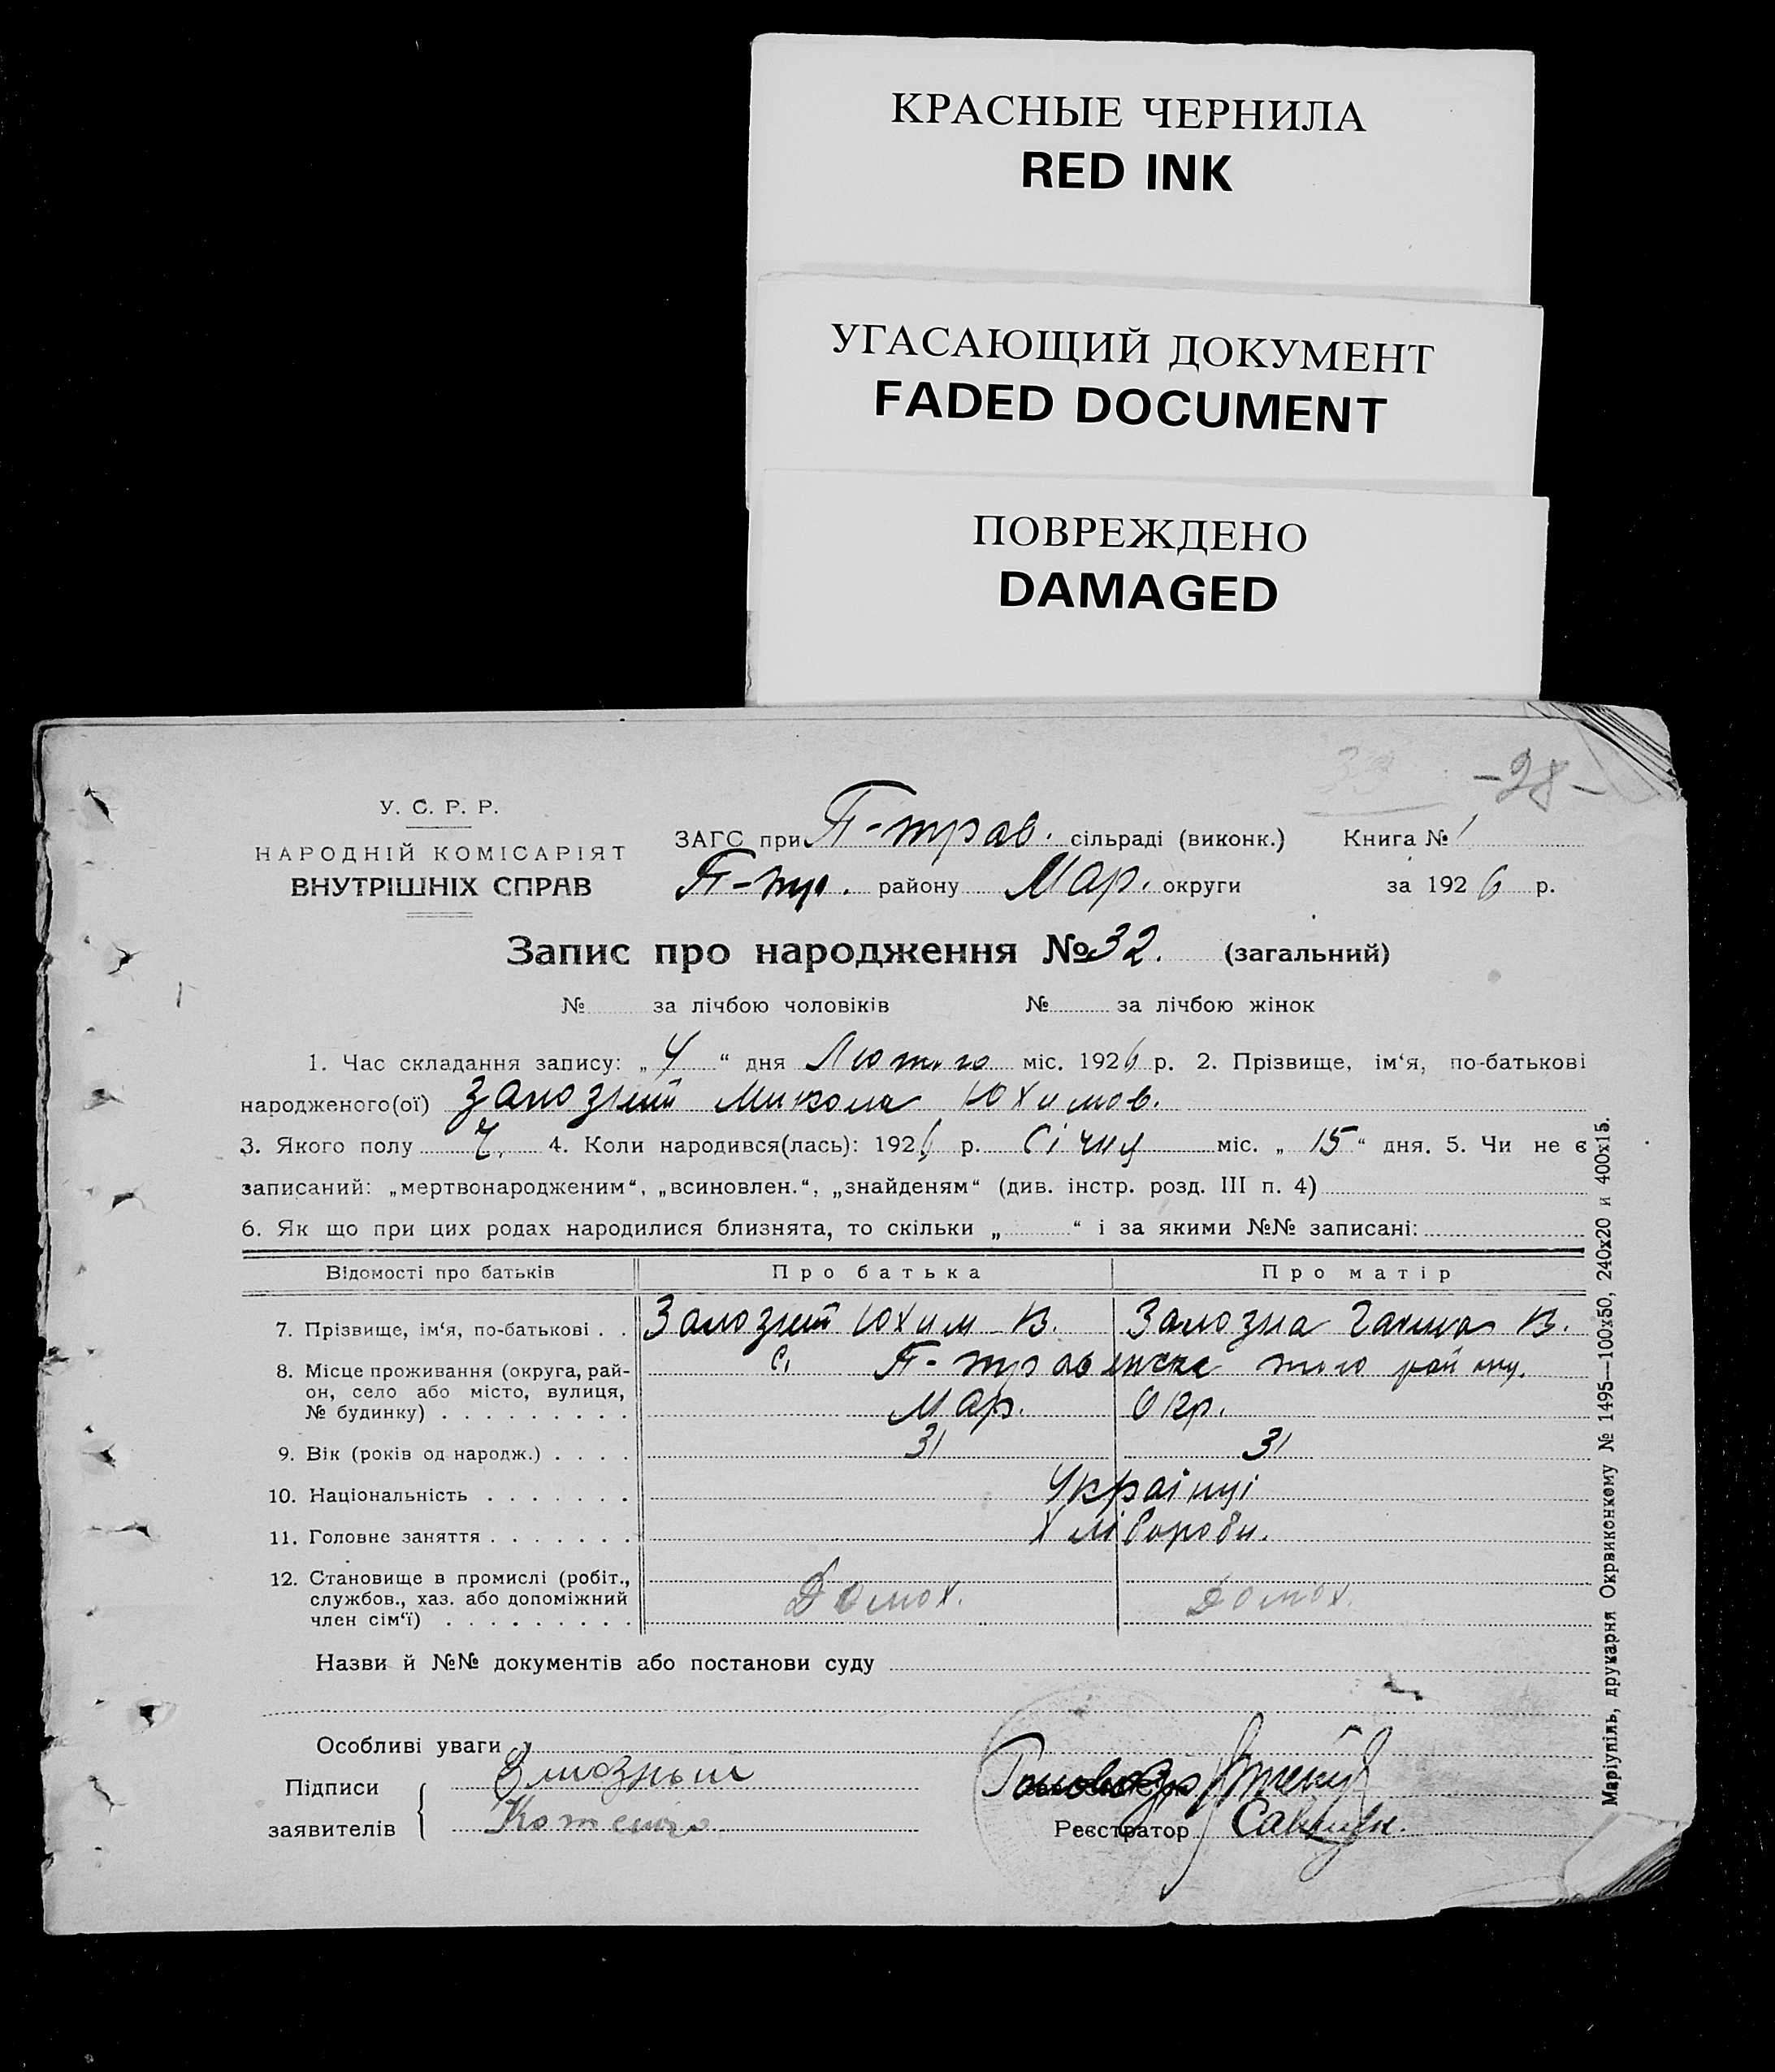 КРАСНЫЕ ЧЕРНИЛА
RED INK
УГАСАЮЩИЙ ДОКУМЕНТ
FADED DOCUMENT
ПОВРЕЖДЕНО
DAMAGED
33 -28-
У. С. Р. Р.
НАРОДНІЙ КОМІСАРІЯТ
ВНУТРІШНІХ СПРАВ
ЗАГС при П-трав. сільраді (виконк.) Книга № 1
П-тр. району Мар. округи за 1926 р.
Запис про народження № 32. (загальний)
№ за лічбою чоловіків № за лічбою жінок
1. Час складання запису: „4“ дня Лютого міс. 1926 р. 2. Прізвище, ім‘я, по-батькові
народженого(ої) Залозний Микола Юхимов.
3. Якого полу Ч. 4. Коли народився(лась): 1926 р. Січня міс. „15“ дня. 5. Чи не є
записаний: „мертвонародженим“, „всиновлен.“, „знайденям“ (див. інстр. розд. III п. 4)
6. Як що при цих родах народилися близнята, то скільки „ “ і за якими №№ записані:
Відомості про батьків Про батька Про матір
7. Прізвище, ім‘я, по-батькові . . Залозний Юхим В. Залозна Ганна В.
8. Місце проживання (округа, рай-
он, село або місто, вулиця,
№ будинку) . . . . . . . . .
с. П-травенське того району.
Мар. Окр.
9. Вік (років од народж.) . . . . 31 31
10. Національність . . . . . . . Українці
11. Головне заняття . . . . . . . Хлібороби.
12. Становище в промислі (робіт.,
службов., хаз. або допоміжний
член сім‘ї) . . . . . . . . .
Домох. Домох.
Назви й №№ документів або постанови суду
Особливі уваги
Підписи
заявителів
Реєстратор
Маріупіль, друкарня Окрвиконкому № 1495—100х50, 240х20 и 400х15.